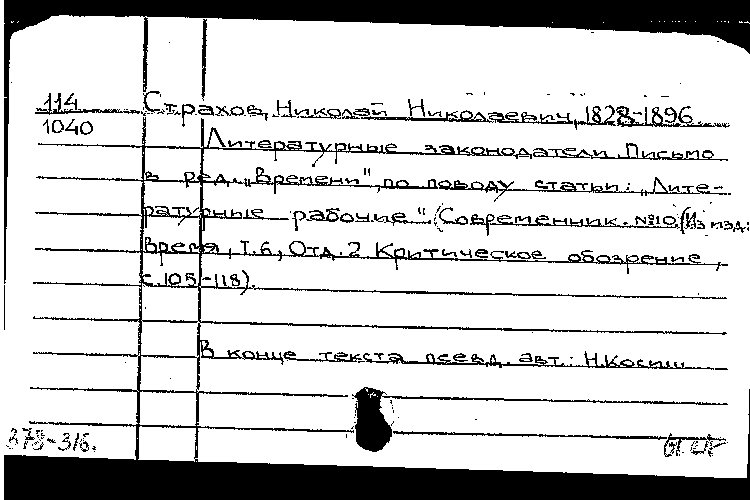 114
1040
Страхов, Николай Николаевич, 1828-1896.
Литературные законодатели. Письмо
в ред. „Времени", по поводу статьи: „Лите-
ратурные рабочие". (Современник. №10. (Из изд:
Время, Т.6, Отд. 2 Критическое обозрение,
с. 105-118).
В конце текста псевд. авт.: Н. Косица
378-316.